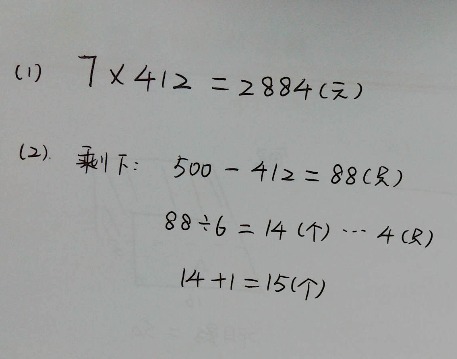 (1) 7×412=2884(元)
(2). 剩下: 500-412=88(只)
88÷6=14(个)…4(只)
14+1=15(个)